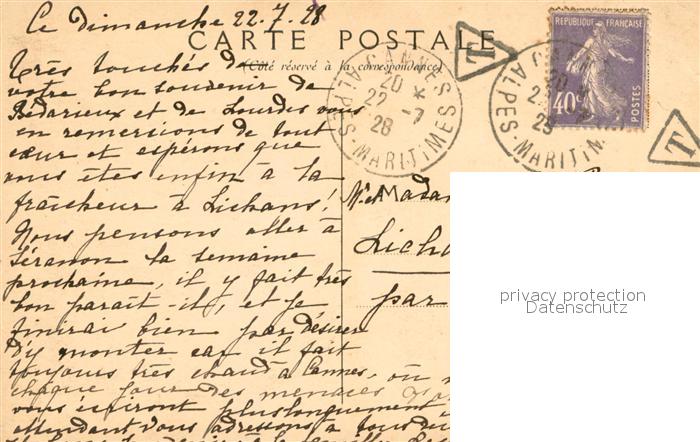 Ce Dimanche 22.7.28
CARTE POSTALE
(Côté réservé à la correspondance)
Très touchés de
votre bon souvenir de
Bédarieux et de Lourdes vous
en remercions de tout
cœur et espérons que
vous êtes enfin à la
fraîcheur à Lichans!
Nous pensons aller à
Séranon la semaine
prochaine, il y fait très
bon paraît-il, et je
finirai bien par désirer
d'y monter car il fait
toujours très chaud à Cannes, où
chaque jour des menaces
vous écriront plus longuement
attendant vous adressons à tous
CANNES
20
22-7
28
ALPES-MARITIMES
T
CANNES
20
28
ALPES-MARITIM
REPUBLIQUE FRANÇAISE
40c
POSTES
T
M. et Madam
Licha
par
privacy protection
Datenschutz